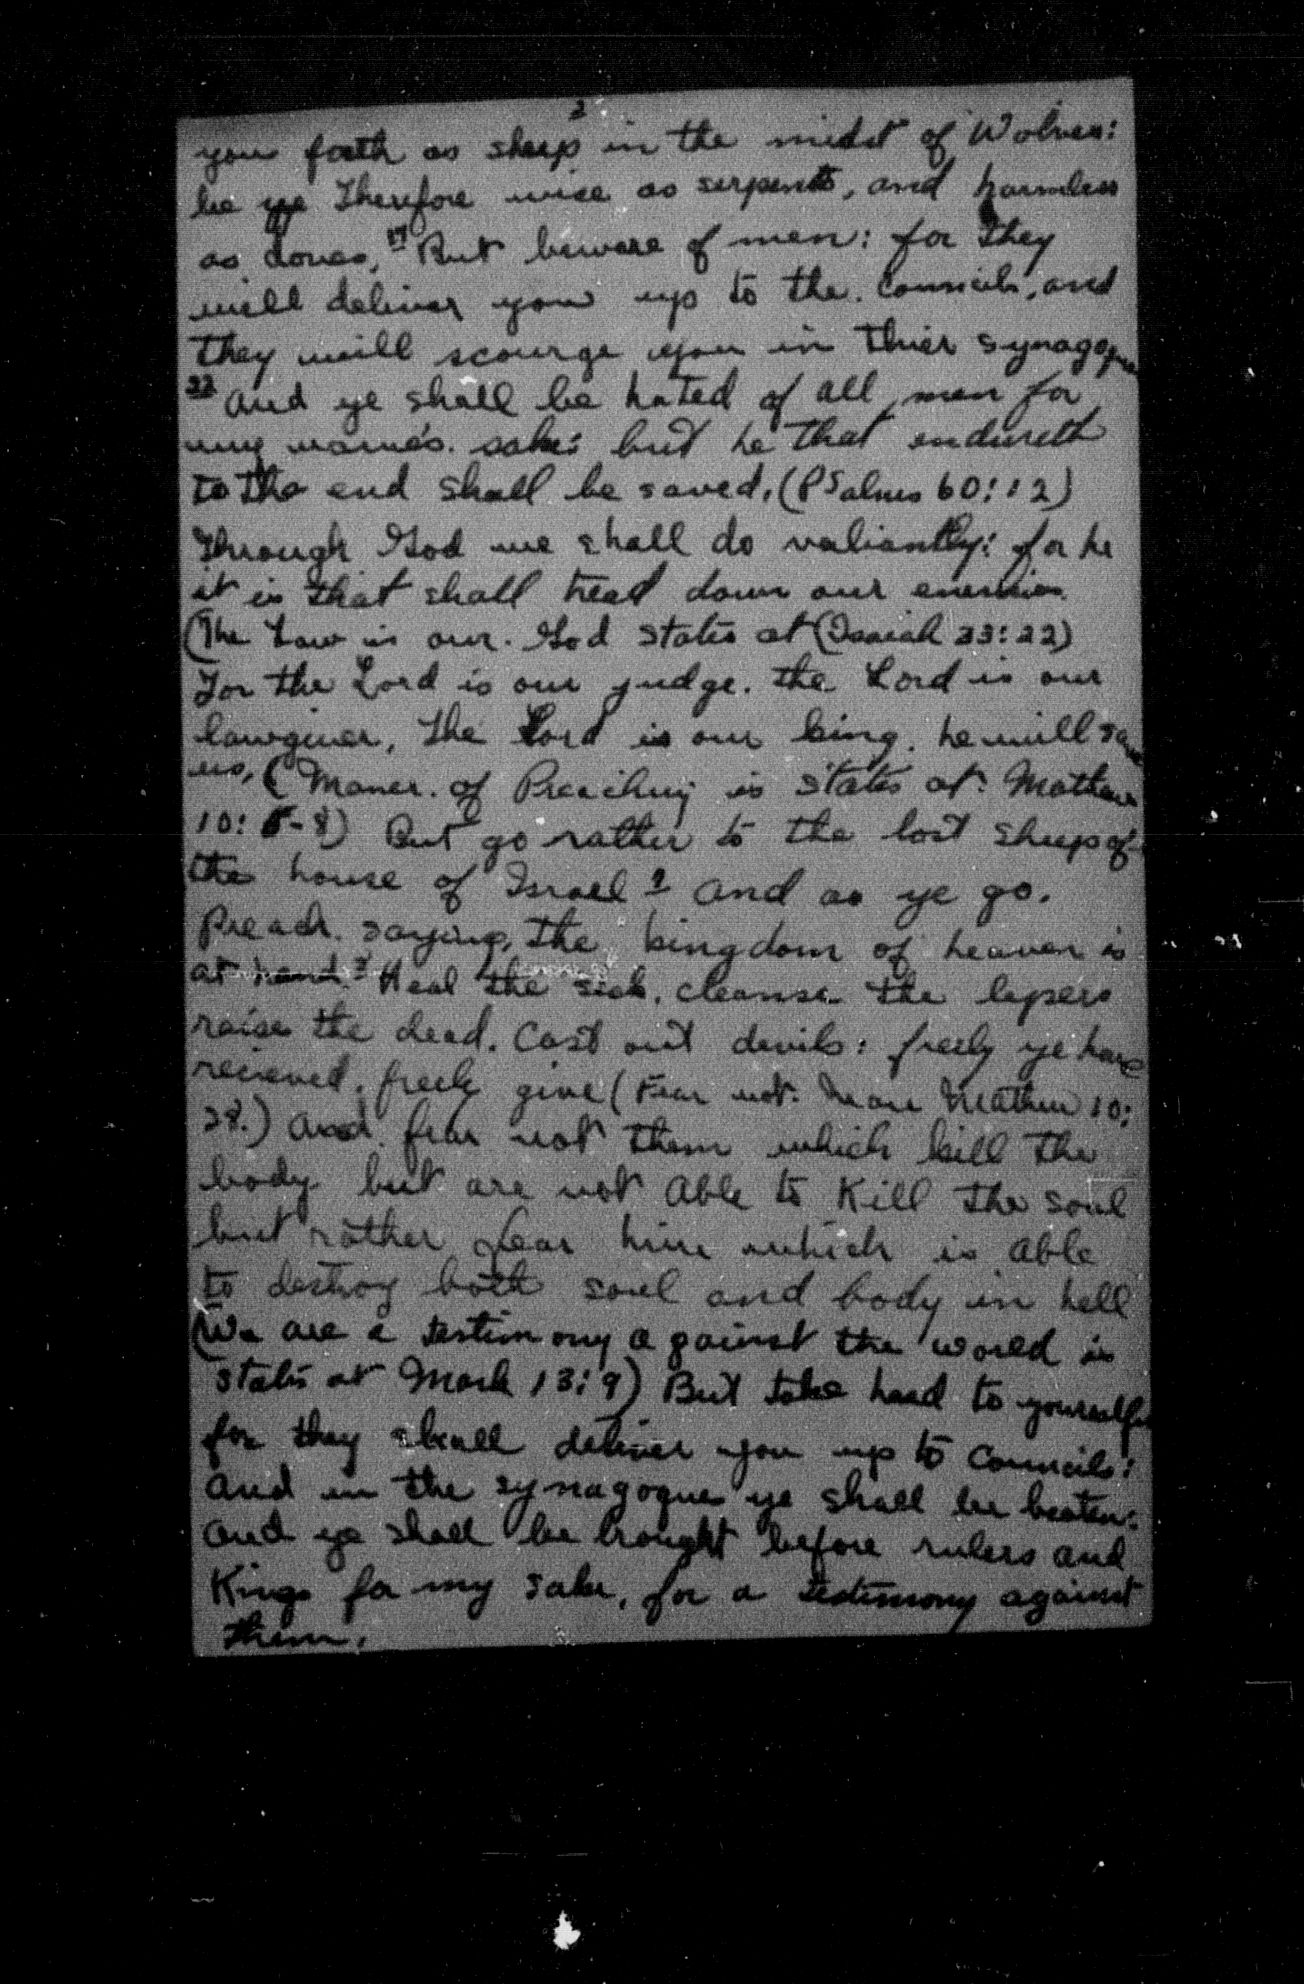 2
you forth as sheep in the midst of Wolves:
be ye Therefore wise as serpents, and harmless
as doves, 17 But beware of men: for They
will deliver you up to the. Councils, and
they will scourge you in thier synagogue
22 and ye shall be hated of all men for
my name's. sake: but he that endureth
to the end shall be saved, (Psalms 60:12)
Through God we shall do valiantly: for he
it is that shall tread down our enemies.
(The Law is our. God states at (Isaiah 33:22)
For the Lord is our judge. the Lord is our
lawgiver, The Lord is our king. he will save
us, (Maner. of Preaching is states at. Mathew
10: 5-8) But go rather to the lost sheep of
the house of Israel 9 and as ye go.
Preach. saying, the kingdom of heaven is
at hand. 8 Heal the sick, cleanse the lepers
raise the dead. Cast out devils: freely ye have
recieved, freely give (Fear not. Man Mathew 10:
28.) and. fear not them which kill the
body but are not able to Kill the soul
but rather fear him which is able
to destroy both soul and body in hell
(We are a testimony against the world is
states at Mark 13:9) But take head to yourselfs
for they shall deliver you up to Councils:
and in the synagogue ye shall be beaten:
and ye shall be brought before rulers and
Kings for my sake, for a testimony against
them.